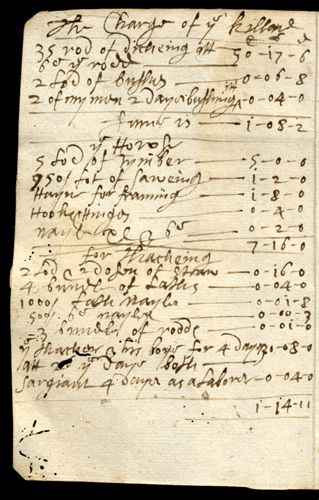 The Charge of ye Killone
35 rod of ditcheing att
6d ye rodd 0-17-6
2 lod of bushes 0-06-8
2 of my men 2 dayes bushing itt 0-04-0
Sume is 1-08-2
ye Howse
5 lod of tymber 5-0-0
950 fot of saweing 1-2-0
for framing 1-8-0
Hookes hinges 0-4-0
nayles &c 0-2-0
7-16-0
for thacheing
2 lod & 2 dosen of straw 0-16-0
4 bundle of laths 0-04-0
1000 lath nayls 0-01-8
500 nayles 0-00-3
3 bundle of rodds 0-01-0
ye thacher & his boye for 4 dayes 0-08-0
att 2s ye daye both
Sargiant 4 dayes as a laborer 0-04-0
1-14-11